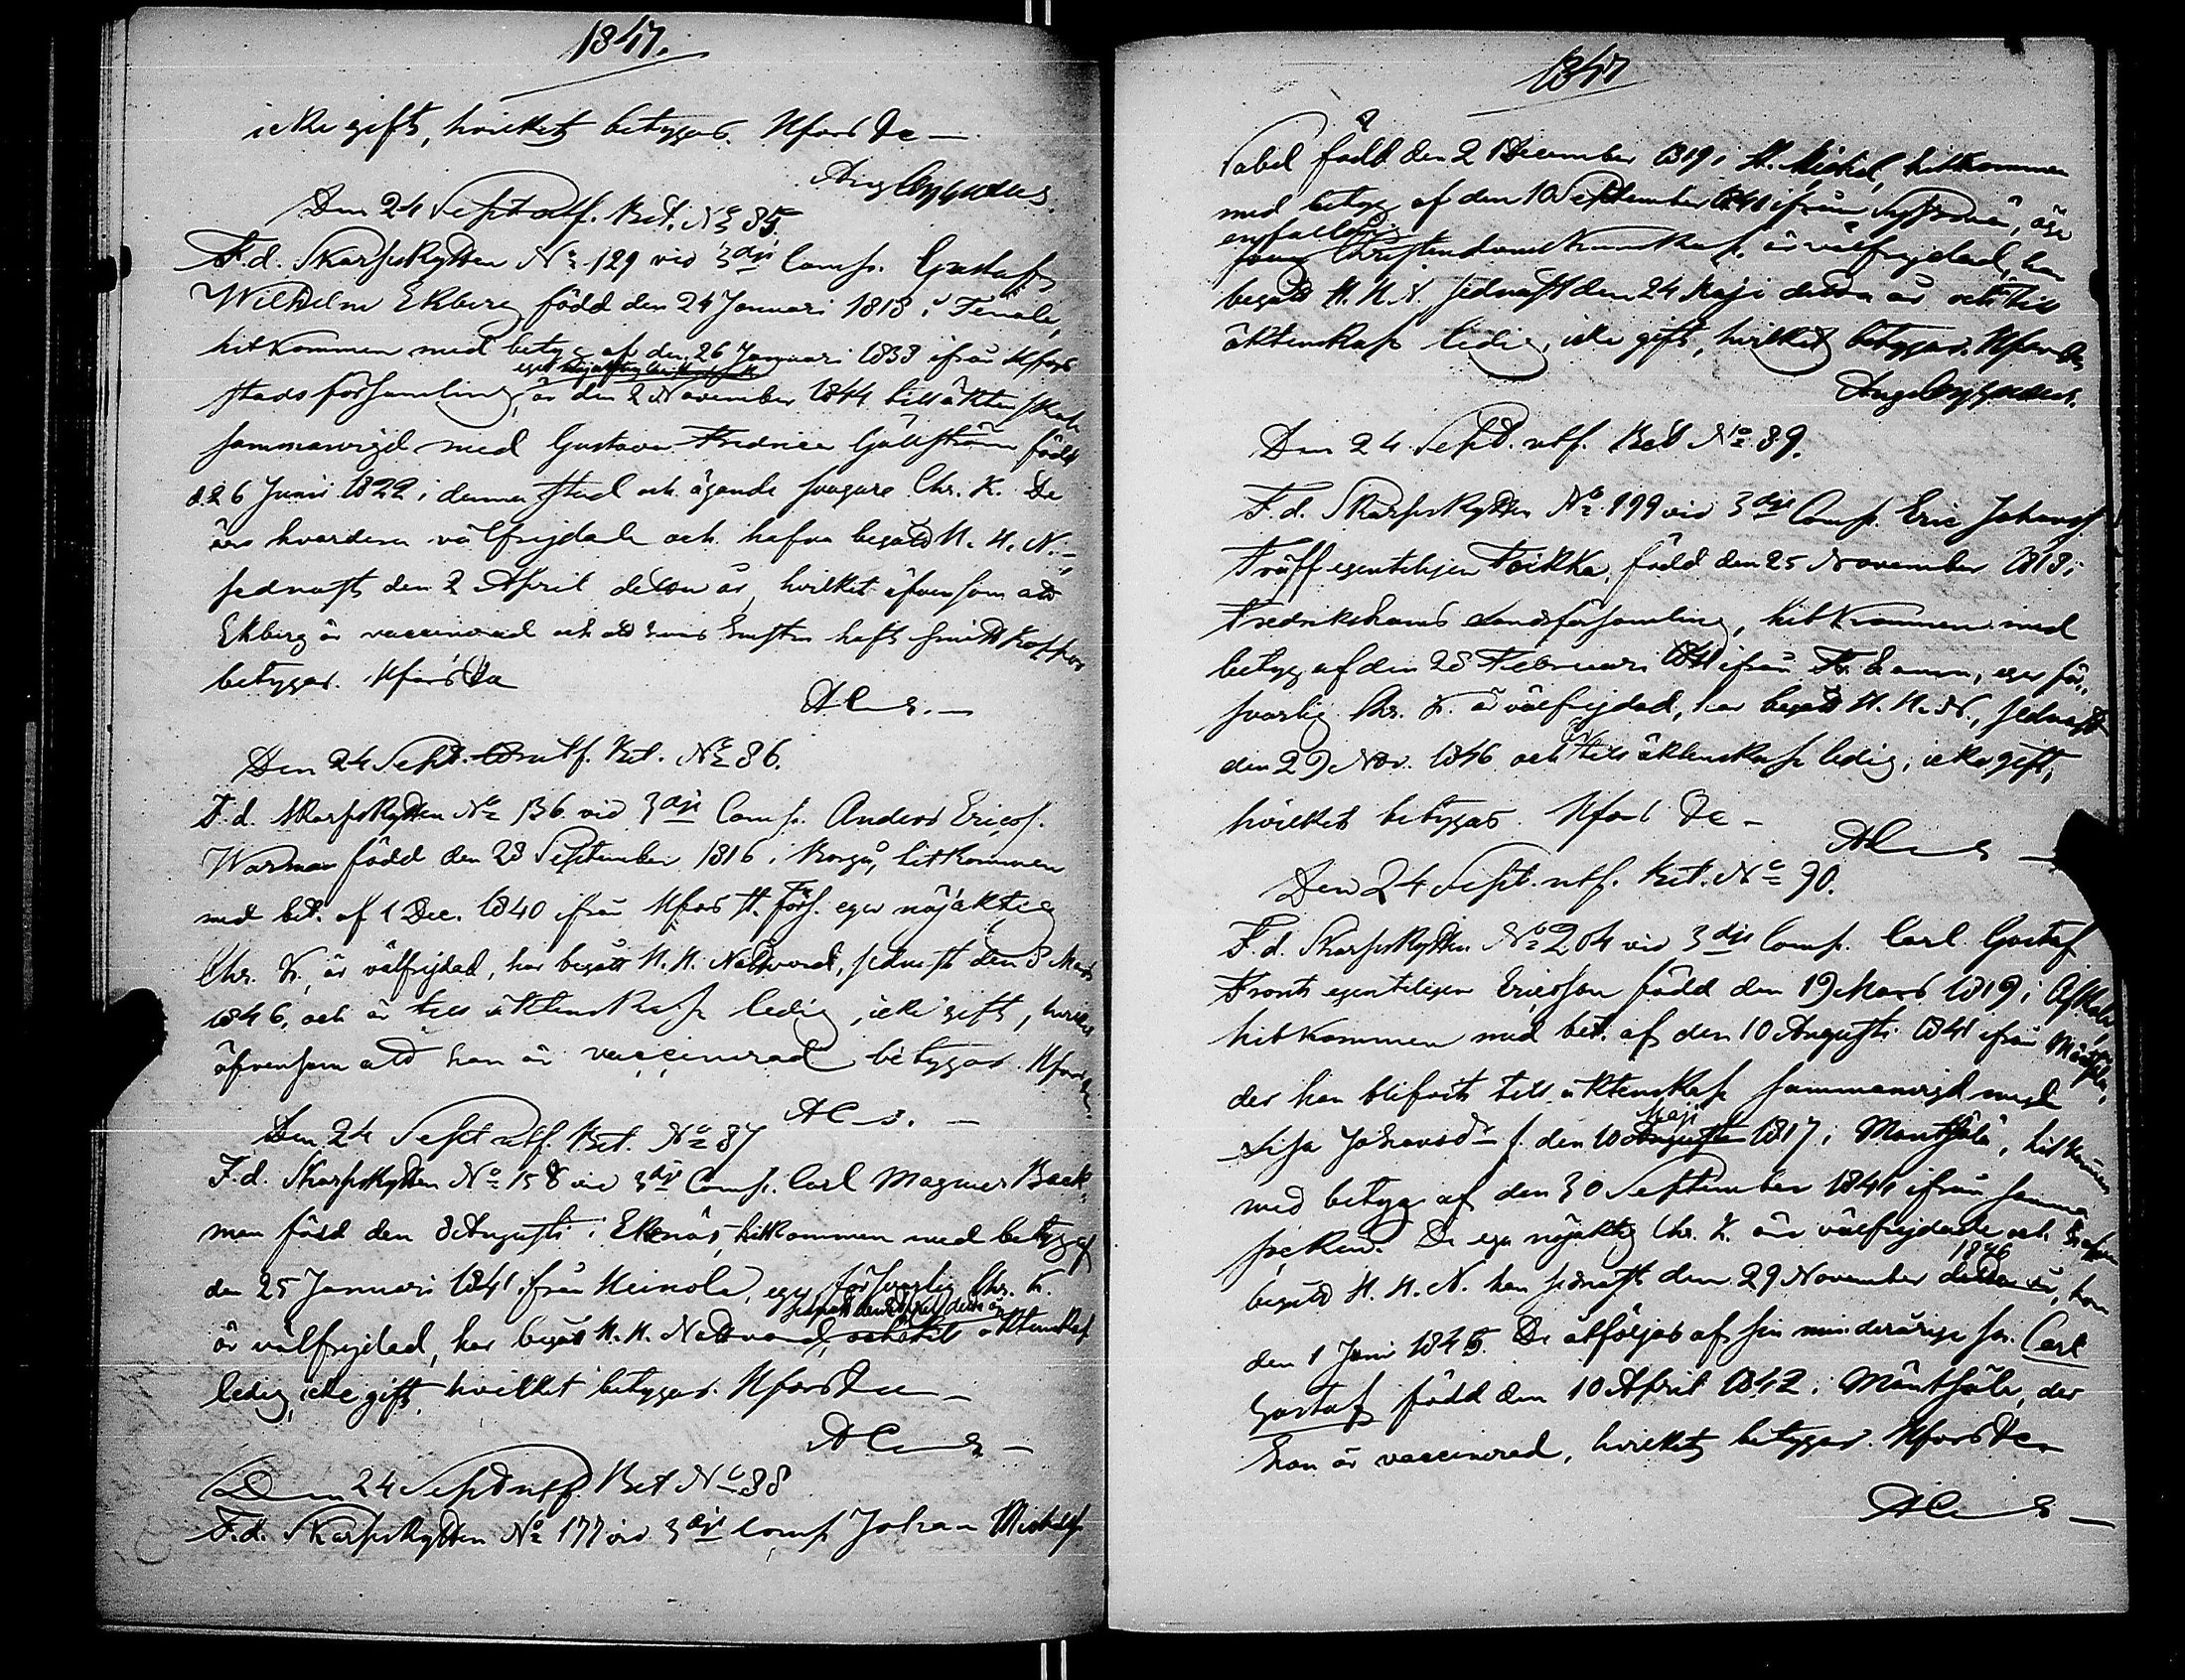 1847.
icke gift, hvilket betygas. Hfors &c —
Aug Cygnæus.
Den 24 Sept utf. Bet. No 85.
F.d. Skarpskytten No 129 vid 3dje Comp. Gustaf
Wilhelm Ekberg född den 24 Januari 1818 i Tenala,
hitkommen med betyg af den 26 Januari 1838 ifrån Hfors
eger nöjaktig
stadsförsamling, är den 2 November 1844 till äktenskap
sammanvigd med Gustava Fredrica född
d. 26 Junii 1822 i denna stad och ägande svagare Chr. K. De
äro hvardera välfrejdade och hafva begått H. H. N.
sednast den 2 April detta år, hvilket äfvensom att
Ekberg är vaccinerad och att hans hustru haft smittkoppor
betygas. Hfors &c
A C s. —
Den 24 Sept. utf. Bet. No 86.
F.d. Skarpskytten No 136 vid 3dje Comp. Anders Ericss.
Warman född den 28 September 1816 i Borgå, hitkommen
med bet. af 1 Dec. 1840 ifrån Hfors förs. eger nöjaktig
Chr. K, är välfrejdad, har begått H. H. Nattvard, sednast den 8 Mars
1846, och är till äktenskap ledig, icke gift, hvilket
äfvensom att han är vaccinerad betygas. Hfors &c
A C s. —
Den 24 Sept utf. Bet. No 87
F.d. Skarpskytten No 158 vid 3dje Comp. Carl Magnus Back-
man född den 8 Augusti i Ekenäs, hitkommen med betyg af
den 25 Januari 1841 ifrån Heinola, eger försvarlig Chr. K.
sednast den detta år
är välfrejdad, har begått H. H. Nattvard, och är till äktenskap
ledig, icke gift, hvilket betygas. Hfors &c —
A C s —
Den 24 Sept utf. Bet No 88
F.d. Skarpskytten No 177 vid 3dje Comp Johan Michelss.
1847
Sabel född den 21 December 1819 i St. Michel, hitkommen
med betyg af den 10 September 1841 ifrån Sysmä, äger
enfaldig
Christendomskunskap, är välfrejdad, har
begått H. H. N. sednast den 24 Maji detta år och är till
äktenskap ledig, icke gift, hvilket betygas. Hfors &c
Aug Cygnæus.
Den 24 Sept. utf. Bet No 89.
F.d. Skarpskytten No 199 vid 3dje Comp. Eric Johanss.
Träff egenteligen Toikka, född den 25 November 1818 i
Fredrikshams Landsförsamling, hitkommen med
betyg af den 28 Februari 1841 ifrån Fr. hamn, eger för-
svarlig Chr. K. är välfrejdad, har begått H. H. N., sednast
den 29 Nov. 1846 och är till äktenskap ledig, icke gift,
hvilket betygas. Hfors &c —
A C s —
Den 24 Sept. utf. Bet. No 90.
F.d. Skarpskytten No 204 vid 3dje Comp. Carl Gustaf
Front egenteligen Ericsson född den 19 Mars 1819 i Askola,
hitkommen med bet. af den 10 Augusti 1841 ifrån Mäntsälä,
der han blifvit till äktenskap sammanvigd med
Maji
Lisa Johansdr f. den 10 Augusti 1817 i Mäntsälä, hitkommen
med betyg af den 30 September 1841 ifrån samma
socken. De ega nöjaktig Chr. K. äro välfrejdade och hafva
1846
begått H. H. N. han sednast den 29 November detta år, hon
den 1 Juni 1845. De åtföljas af sin minderårige son Carl
Gustaf född den 10 April 1842 i Mäntsälä, der
han är vaccinerad, hvilket betygas. Hfors &c
A C s —